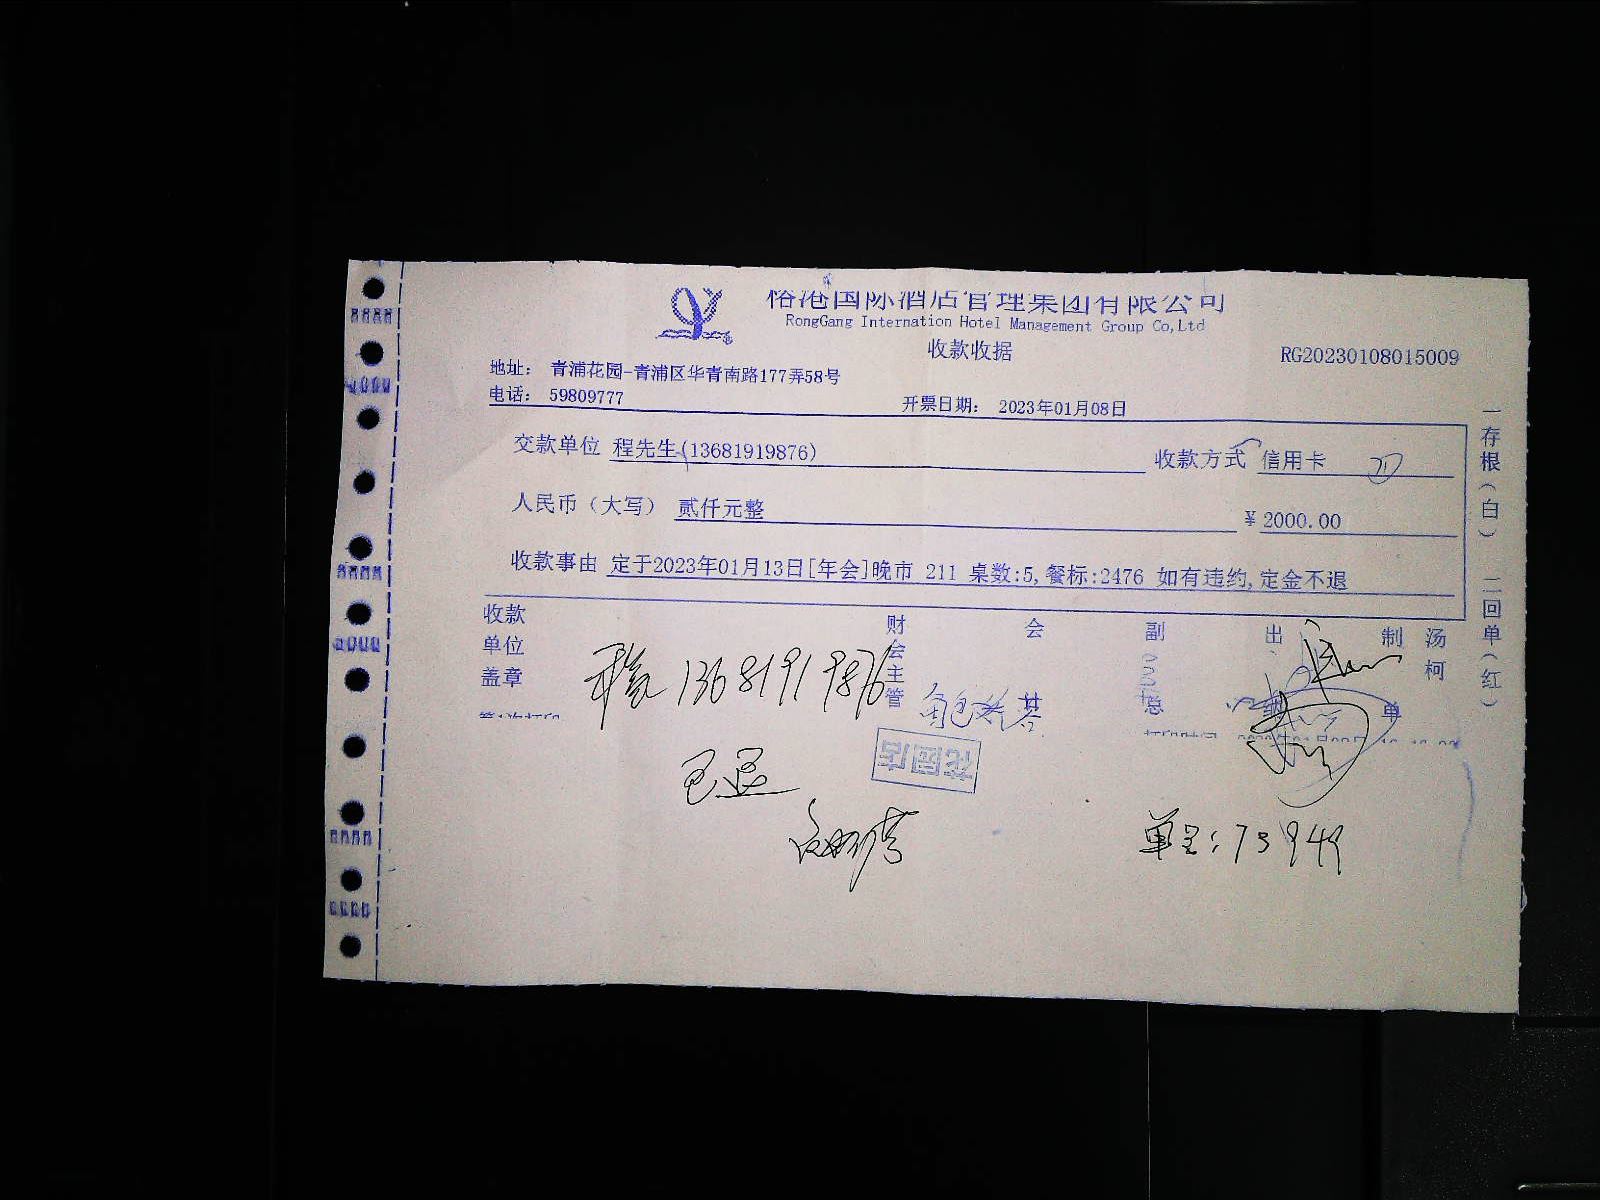 国际酒店管理集团有限公司
RongGang Internation Hotel Management Group Co,Ltd
收款收据
RG20230108015009
地址： 青浦花园-青浦区华青南路177弄58号
电话： 59809777
开票日期： 2023年01月08日
交款单位 程先生(13681919876)
收款方式 信用卡
人民币（大写） 贰仟元整
¥ 2000.00
收款事由 定于2023年01月13日[年会]晚市 211 桌数:5,餐标:2476 如有违约,定金不退
收款单位盖章
财会主管
会
副
总
出
纳
制
单
汤柯
13681919876
退
已退
单号:73949
一存根(白) 二回单(红)